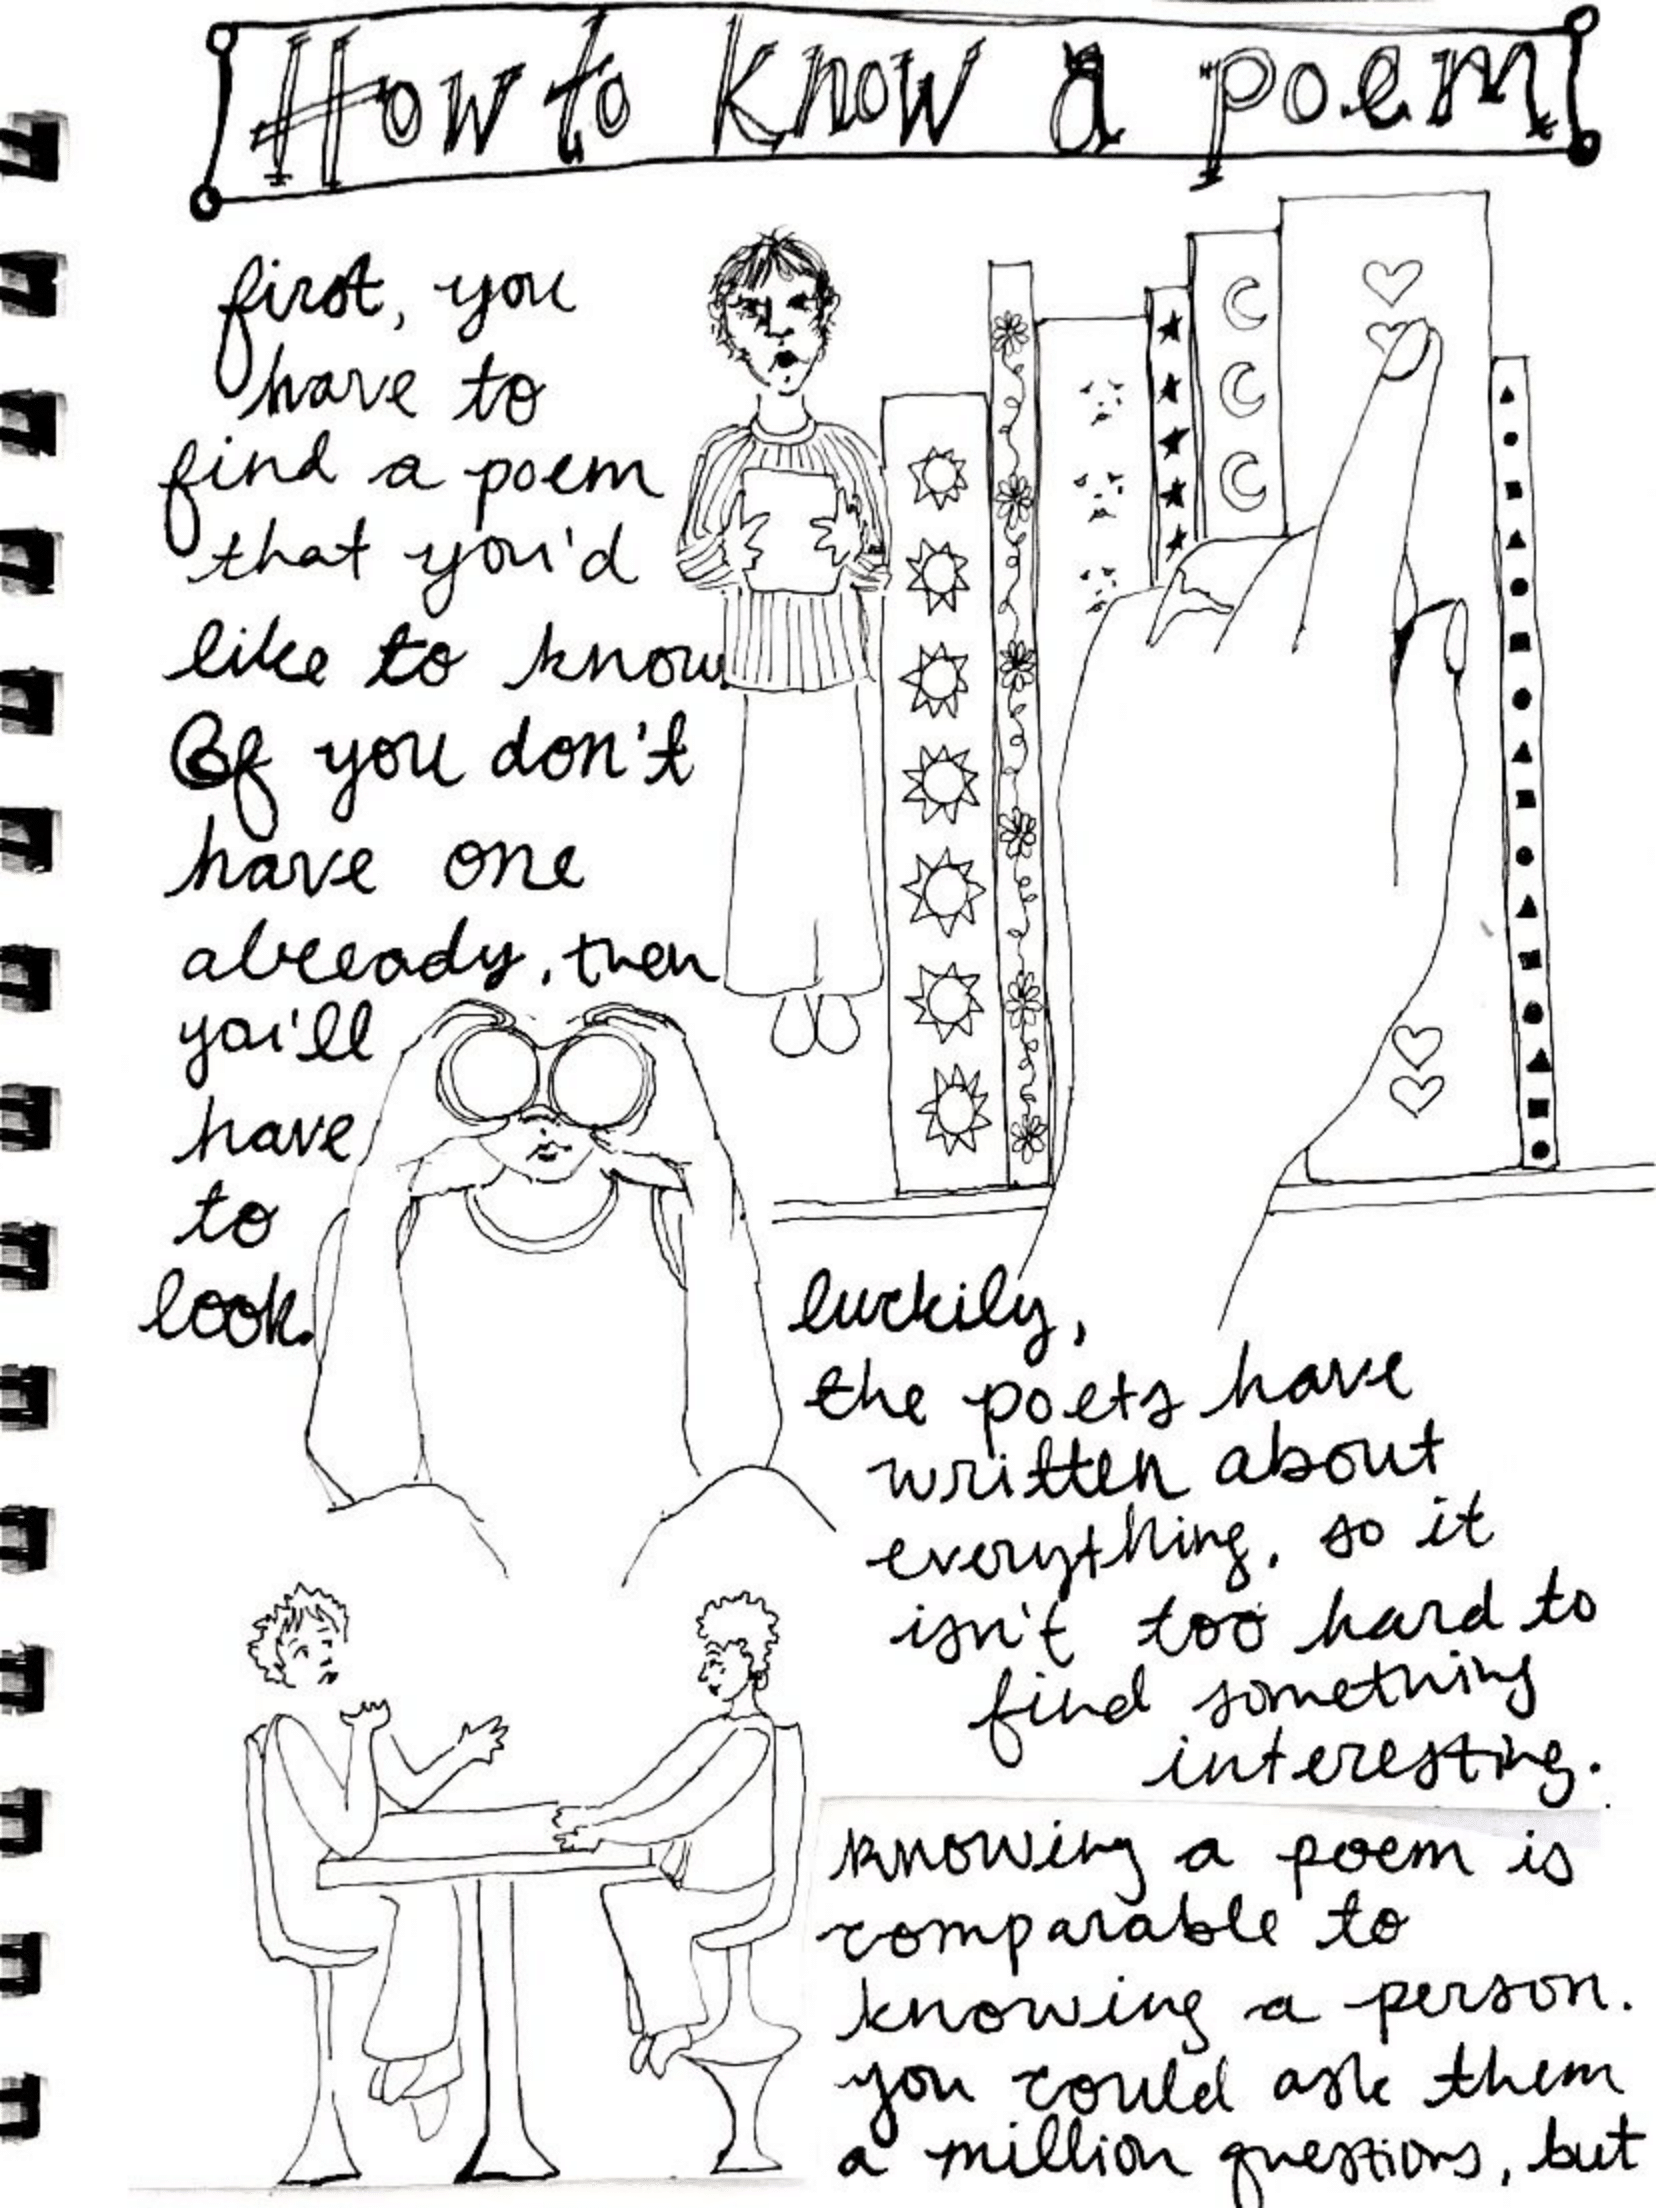 How to know a poem
first, you
have to
find a poem
that you'd
like to know.
If you don't
have one
already, then
you'll
have
to
look.
luckily,
the poets have
written about
everything, so it
isn't too hard to
find something
interesting.
knowing a poem is
comparable to
knowing a person.
you could ask them
a million questions, but